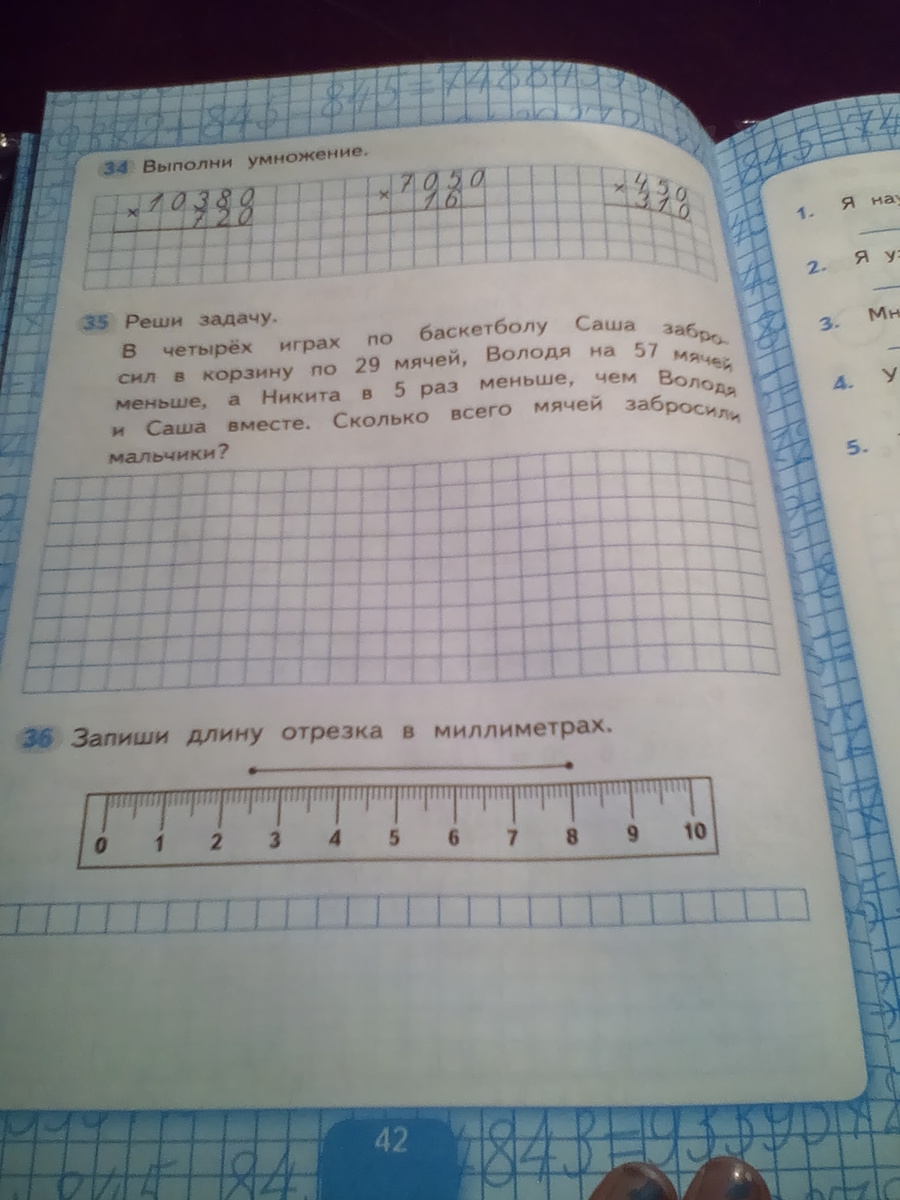 845=7488439
34 Выполни умножение.
×10380 ×7050 ×450
720 16 310
35 Реши задачу.
В четырёх играх по баскетболу Саша забро-
сил в корзину по 29 мячей, Володя на 57 мячей
меньше, а Никита в 5 раз меньше, чем Володя
и Саша вместе. Сколько всего мячей забросили
мальчики?
36 Запиши длину отрезка в миллиметрах.
0 1 2 3 4 5 6 7 8 9 10
42
1. Я
2. Я
3.
4.
5.